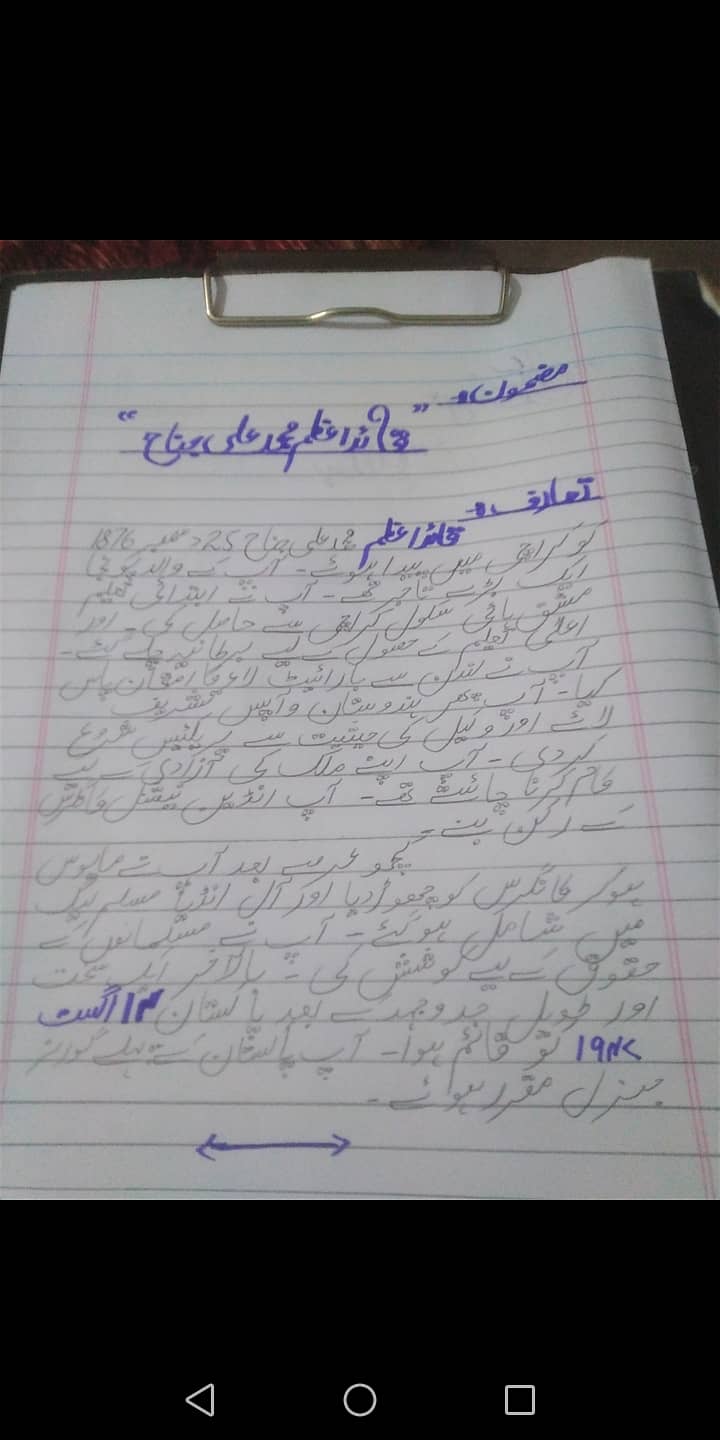 مضمون:-
"قائداعظم محمد علی جناح"
تعارف:-
قائداعظم محمد علی جناح 25 دسمبر 1876
کو کراچی میں پیدا ہوئے۔ آپ کے والد پونجا
ایک بڑے تاجر تھے۔ آپ نے ابتدائی تعلیم
مشن ہائی سکول کراچی سے حاصل کی۔ اور
اعلیٰ تعلیم کے حصول کے لیے برطانیہ چلے گئے۔
آپ نے لندن سے بار ایٹ لاء کا امتحان پاس
کیا۔ آپ پھر ہندوستان واپس تشریف
لائے اور وکیل کی حیثیت سے پریکٹس شروع
کر دی۔ آپ اپنے ملک کی آزادی کے لیے
کام کرنا چاہتے تھے۔ آپ انڈین نیشنل کانگرس
کے رکن بنے۔
کچھ عرصے بعد آپ نے مایوس
ہو کر کانگرس کو چھوڑ دیا اور آل انڈیا مسلم لیگ
میں شامل ہو گئے۔ آپ نے مسلمانوں کے
حقوق کے لیے کوشش کی۔ بالآخر ایک سخت
اور طویل جدوجہد کے بعد پاکستان ۱۴ اگست
۱۹۴۷ کو قائم ہوا۔ آپ پاکستان کے پہلے گورنر
جنرل مقرر ہوئے۔